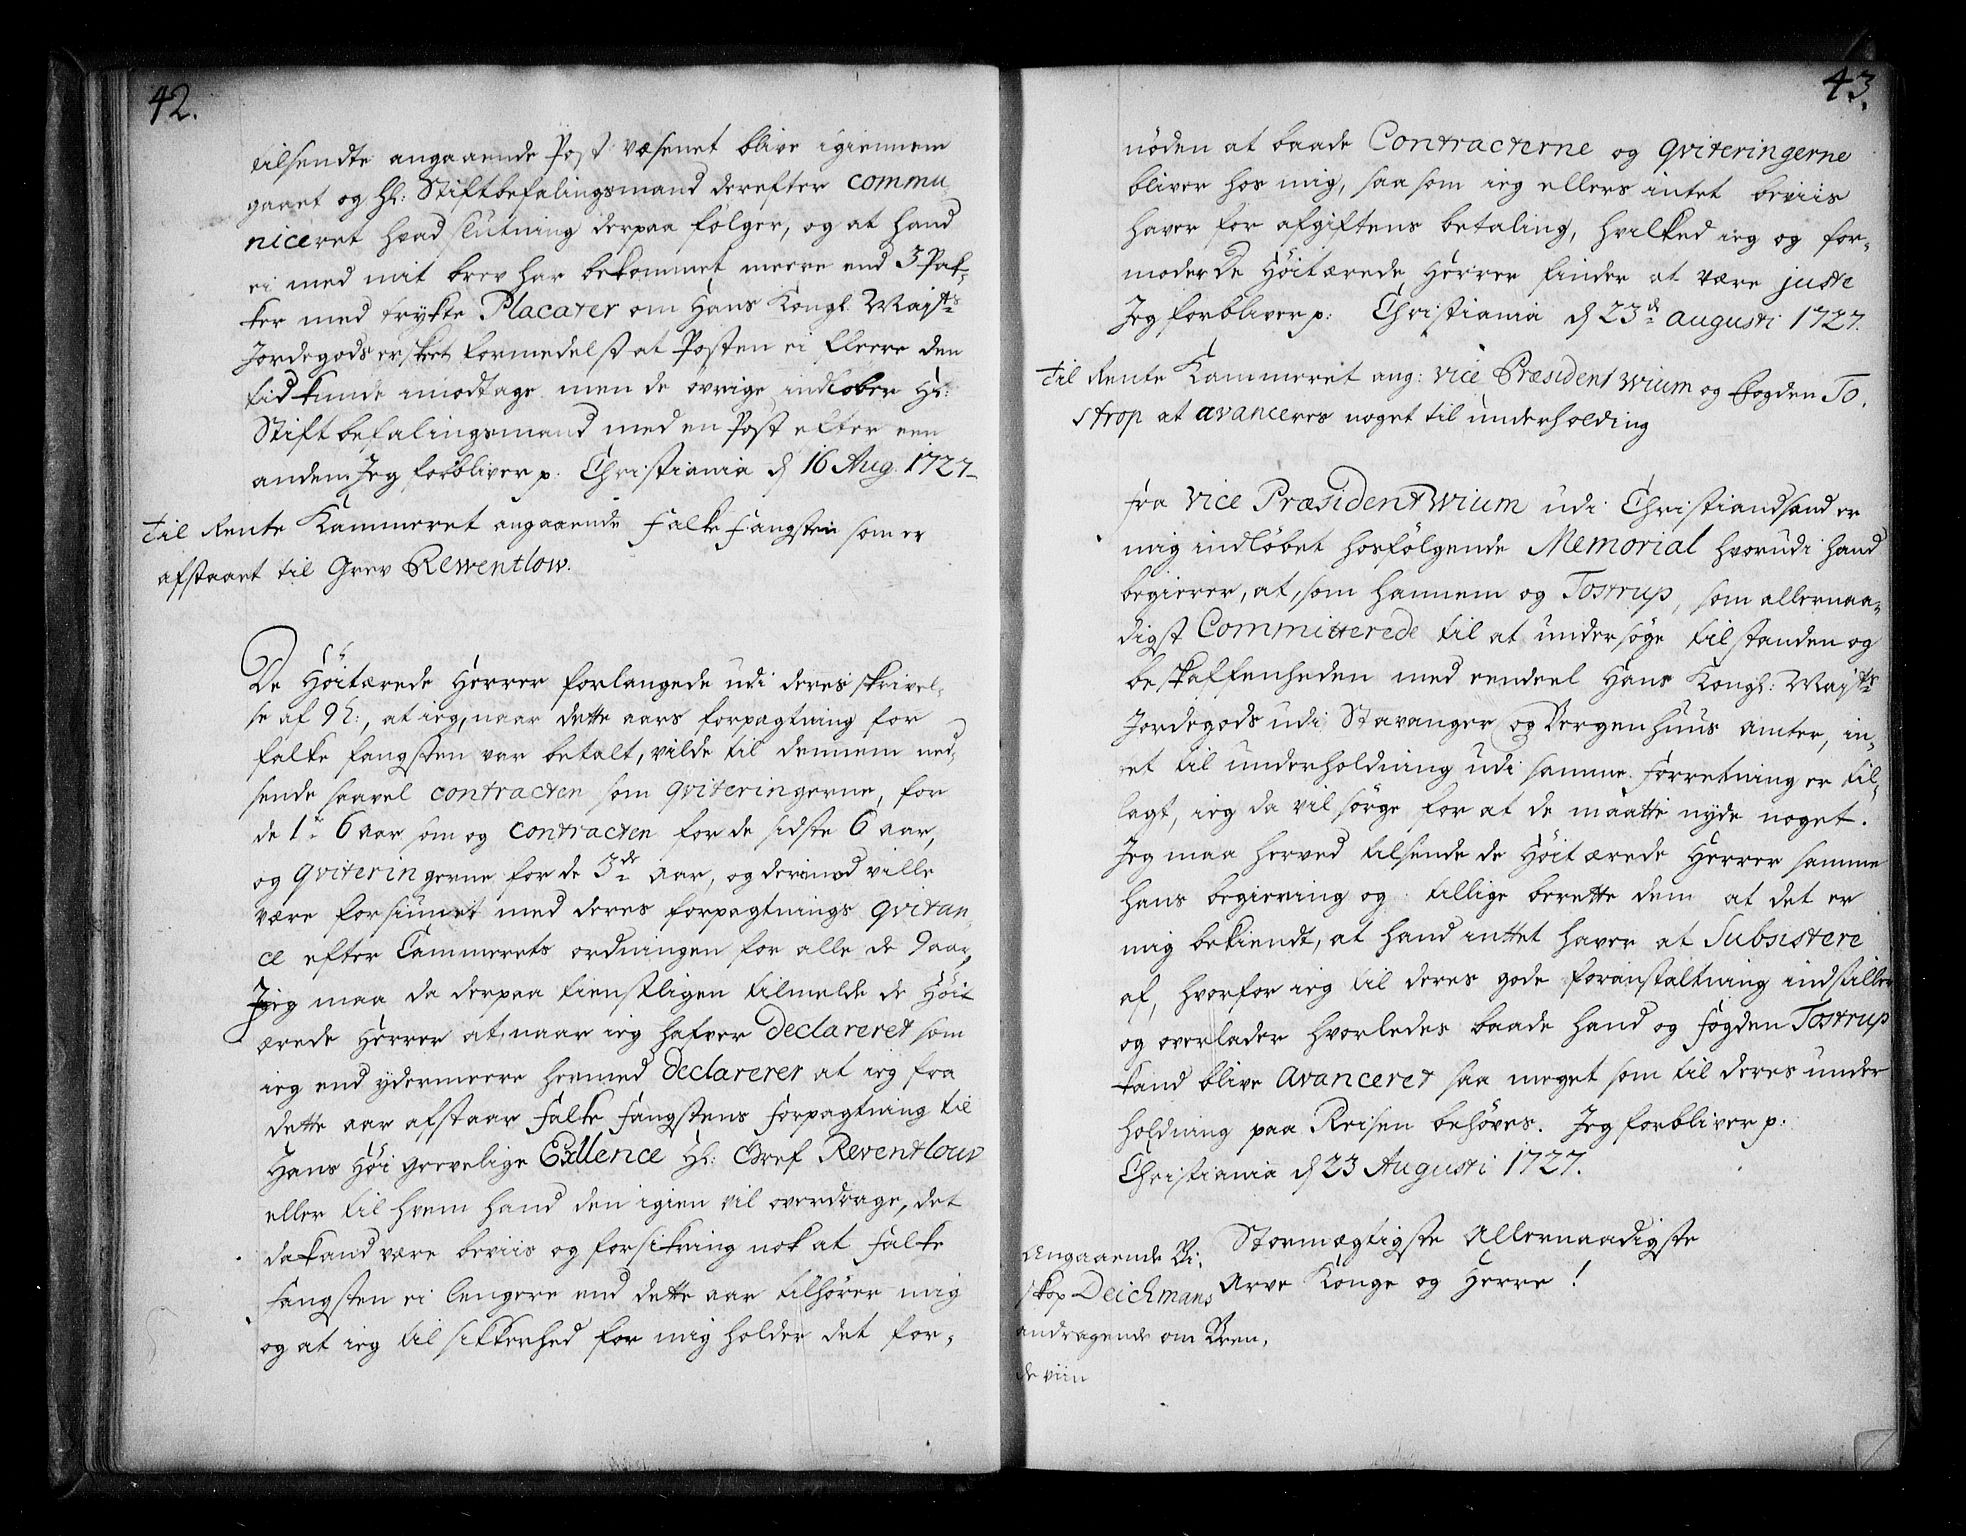 42.
tilsendte angaaende Post væsenet blive igiennem
gaaet og Hl: Stiftbefalingsmand derefter commu
niceret hvad slutning derpaa følger, og at hand
ei med mit brev har bekommet meere end 3 Pak-
ker med trykte Placater om Hans Kongl: Majts
Jordegods er skeet formedelst at Posten ei fleere den
tid kunde imodtage men de øvrige indløber Hl:
Stiftbefalingsmand med en Post efter een
anden. Jeg forbliver p. Christiania d 16 Aug. 1727-
til Rente Kammeret angaaende Falke Fangsten som er
afstaaet til Grev Rewentlow.
De Höitærede Herrer forlangede udi deres skrivel-
se af 9h:, at ieg, naar dette aars forpagtning for
falke fangsten var betalt, vilde til dennem ned-
sende saavel contracten som qviteringerne, for
de 1te 6 aar som og contracten for de sidste 6 aar,
og qviteringerne for de 3de aar, og derimod ville
være forsiunet med deres forpagtnings qvitan-
ce efter Cammerets ordningen for alle de 9 aar,
Jeg maa da derpaa tienstligen tilmelde de Höit
ærede Herrer at, naar ieg hafver declareret som
ieg end ydermeere hermed declarerer at ieg fra
dette aar afstaar Falke Fangstens Forpagtning til
Hans Höi Grevelige Exllence Hl: Gref Reventlouw
eller til hvem hand den igien vil overdrage, det
da kand være beviis og forsikring nok at Falke
Fangsten ei lengere end dette aar tilhører mig
og at ieg til sikkerhed for mig holder det for-
43.
nöden at baade Contracterne og qviteringerne
bliver hos mig, saa som ieg ellers intet beviis
haver for afgiftens betaling, hvilked ieg og for-
moder De Höitærede Herrer finder at være juste
Jeg forbliver p: Christiania d 23de augusti 1727.
til Rente Kammeret ang: vice Præsident Wium og Fogden To-
strop at avanceres noget til underholding
Fra Vice Præsident Wium udi Christiandsand er
mig indløbet hosfölgende Memorial hvorudi hand
begierer, at, som hannem og Tostrup, som allernaa-
digst Committerede til at undersöge tilstanden og
beskaffenheden med eendeel Hans Kongl: Majts
Jordegods udi Stavanger og Bergenhuus Amter, in-
tet til underholdning udi samme forretning er til-
lagt, ieg da vil sörge for at de maatte nyde noget.
Jeg maa herved tilsende de Höit ærede Herrer samme
hans begiering og tillige berette dem at det er
mig bekiendt, at hand inttet haver at Subsistere
af, hvorfor ieg til deres gode foranstaltning indstiller
og overlader hvorledes baade hand og Fogden Tostrup
kand blive avanceret saa meget som til deres under
holdning paa Reisen behöves. Jeg forbliver p:
Christiania d 23 Augusti 1727.
Angaaende Bi-
skop Deichmans
andragende om Bren,
de viin
Stormægtigste Allernaadigste
Arve Konge og Herre!